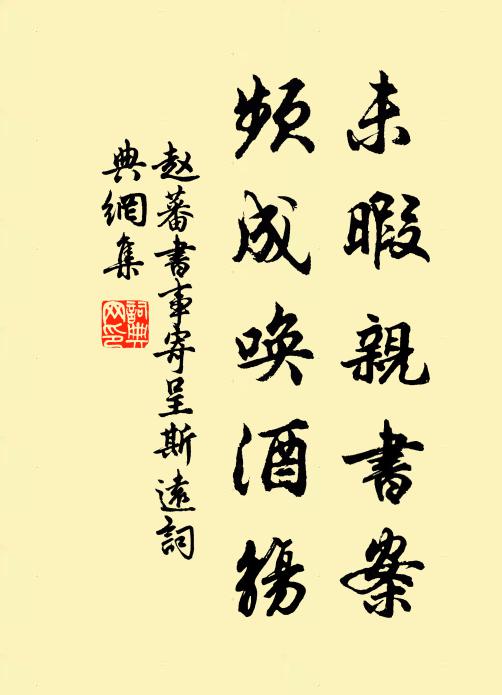 未暇親書案
頻成喚酒觴
赵蕃書事寄呈斯遠詞
典網集
詞典网印